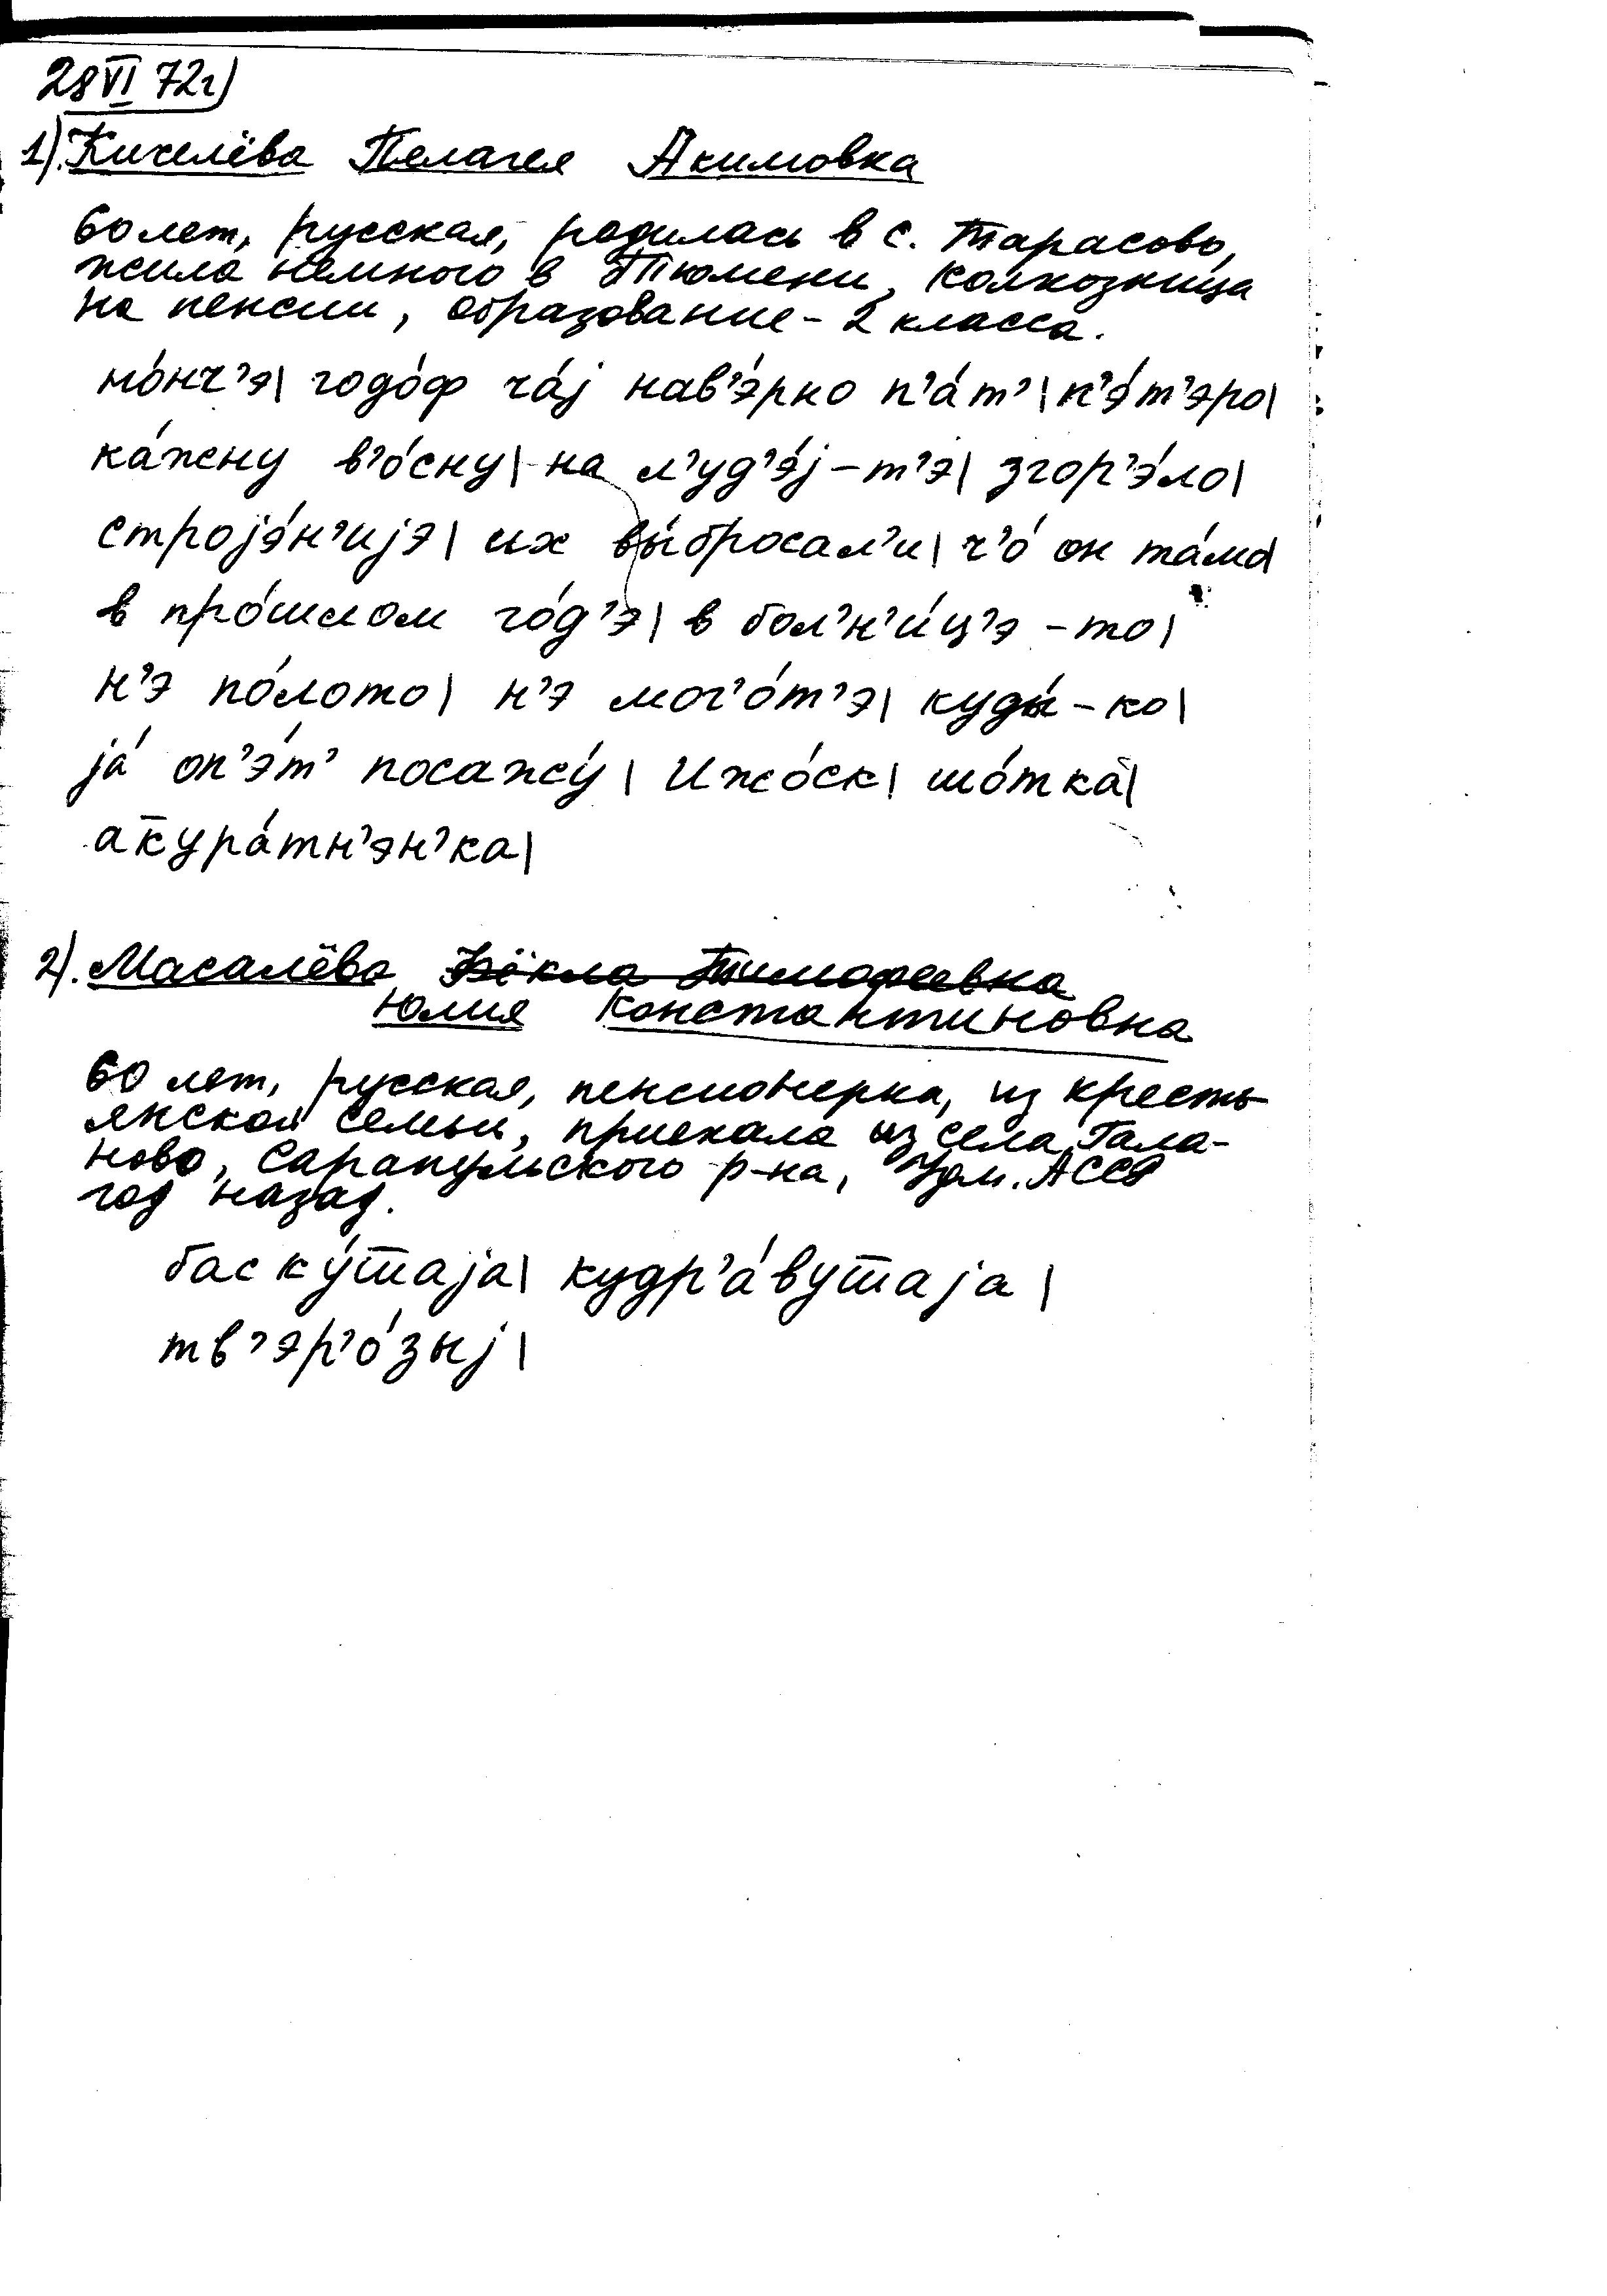 28 VI 72г)
1). Кичелёва Пелагея Акимовна
60 лет, русская, родилась в с. Тарасово,
жила немного в Тюмени, колхозница
на пенсии, образование – 2 класса.
но́нч’э| годо́ф ча́j нав’э́рно п’а́т’| п’э́т’эро|
ка́жну в’о́сну| на л’уд’э́j – т’э| згор’э́ло|
строjэ́н’иjэ| их вы́бросал’и| ч’о́ он та́мо|
в про́шлом го́д’э| в бол’н’и́ц’э – то|
н’э по́лото| н’э мог’о́т’э| куды́ – ко|
jа́ оп’э́т’ посажу́| Ижо́ск| шо́тка|
акура́тн’эн’ка|
2). Масалёва Фёкла Тимофеевна
Юлия Константиновна
60 лет, русская, пенсионерка, из кресть-
янской семьи, приехала из села Гала-
ново, Сарапульского р-на, Удм. АССР
год назад.
баску́т̅аjа| кудр’а́вут̅аjа|
тв’эр’о́зыj|